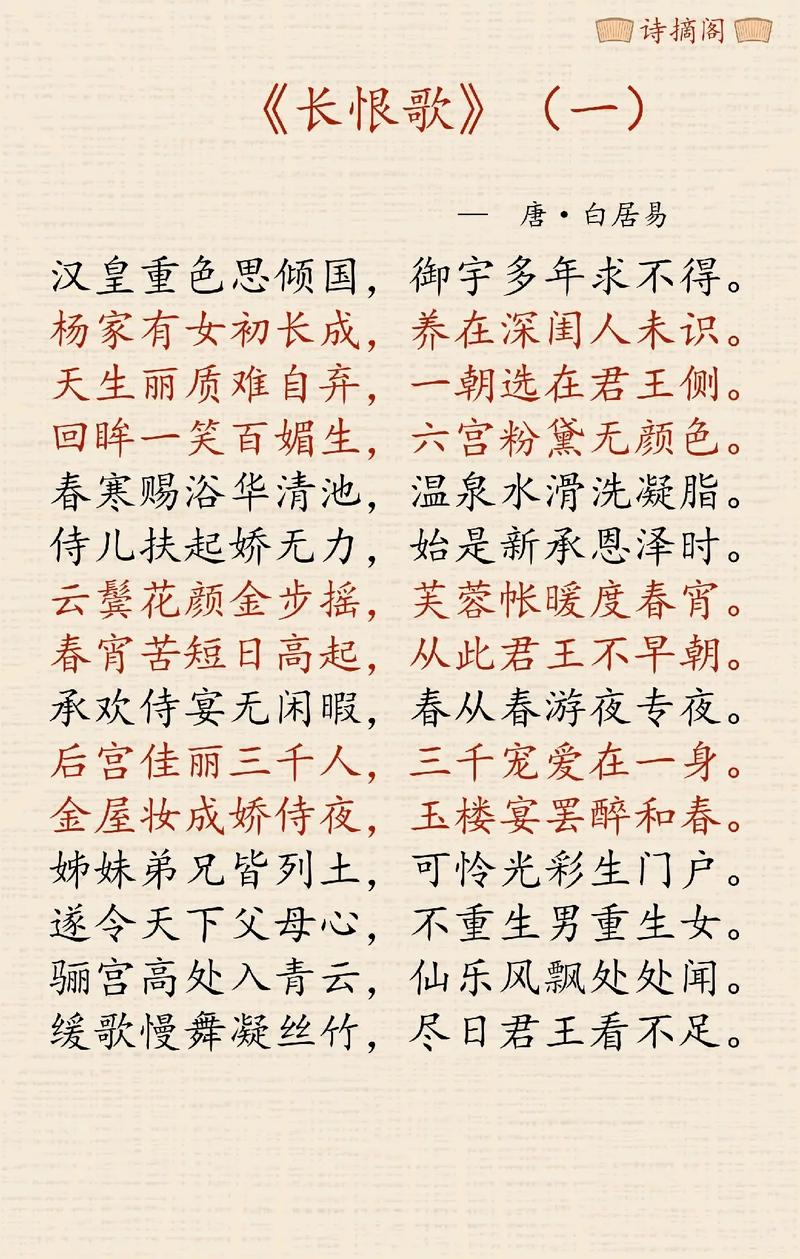 诗摘阁
《长恨歌》（一）
— 唐·白居易
汉皇重色思倾国，御宇多年求不得。
杨家有女初长成，养在深闺人未识。
天生丽质难自弃，一朝选在君王侧。
回眸一笑百媚生，六宫粉黛无颜色。
春寒赐浴华清池，温泉水滑洗凝脂。
侍儿扶起娇无力，始是新承恩泽时。
云鬓花颜金步摇，芙蓉帐暖度春宵。
春宵苦短日高起，从此君王不早朝。
承欢侍宴无闲暇，春从春游夜专夜。
后宫佳丽三千人，三千宠爱在一身。
金屋妆成娇侍夜，玉楼宴罢醉和春。
姊妹弟兄皆列土，可怜光彩生门户。
遂令天下父母心，不重生男重生女。
骊宫高处入青云，仙乐风飘处处闻。
缓歌慢舞凝丝竹，尽日君王看不足。